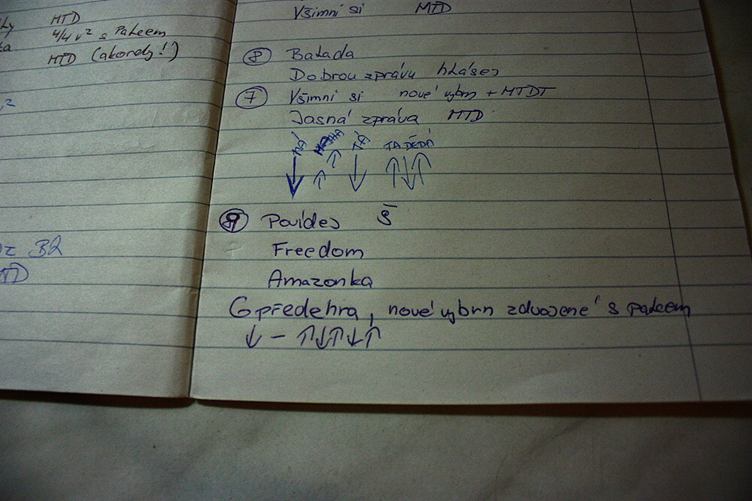 MTD
4/4 v² s Palcem
MTD (akordy!)
Všimni si MTD
8 Balada
Dobrou zprávu hlásej
7 Všimni si nové vybrn + MTDT
Jasná zpráva MTD
TA DÉDÁ
9 Povídej Š
Freedom
Amazonka
G předehra, nové vybrn zdvojené s palcem
↓ – ↑↓↑↓↑
B2